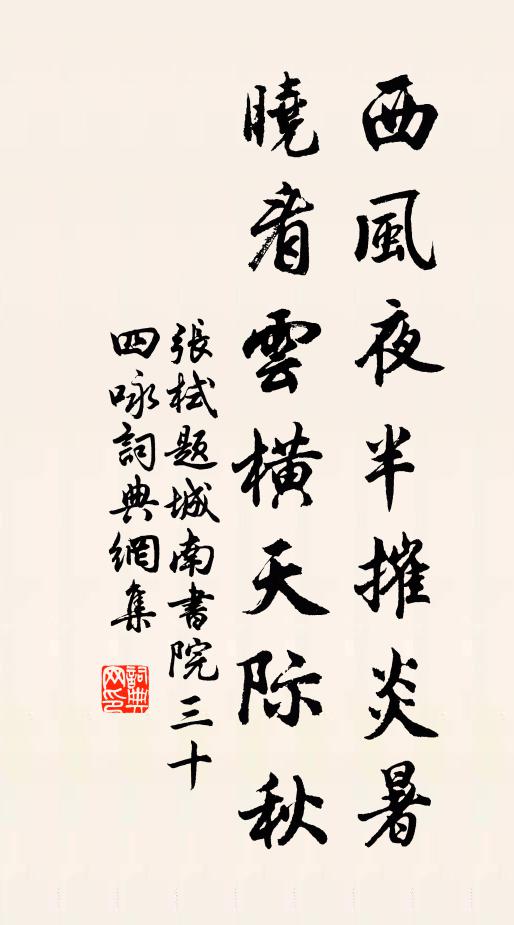 西風夜半摧炎暑
曉看雲橫天际秋
張栻題城南書院三十
四咏詞典網集
詞典网印